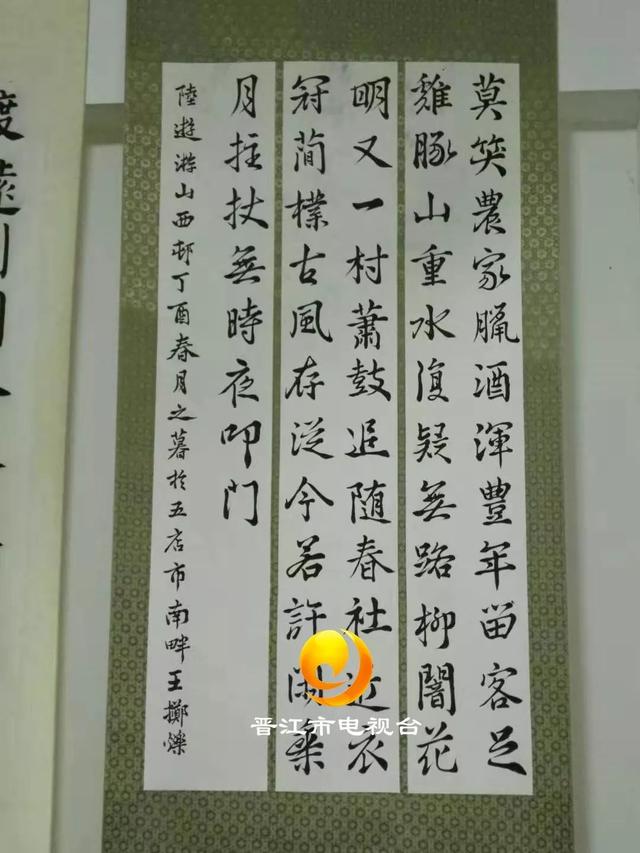 莫笑農家臘酒渾豐年留客足
雞豚山重水復疑無路柳闇花
明又一村蕭鼓追随春社近衣
冠簡樸古風存從今若許閑乘
月拄杖無時夜叩门
陸遊游山西邨丁酉春月之暮於五店市南畔王擲爍
晋江市电视台